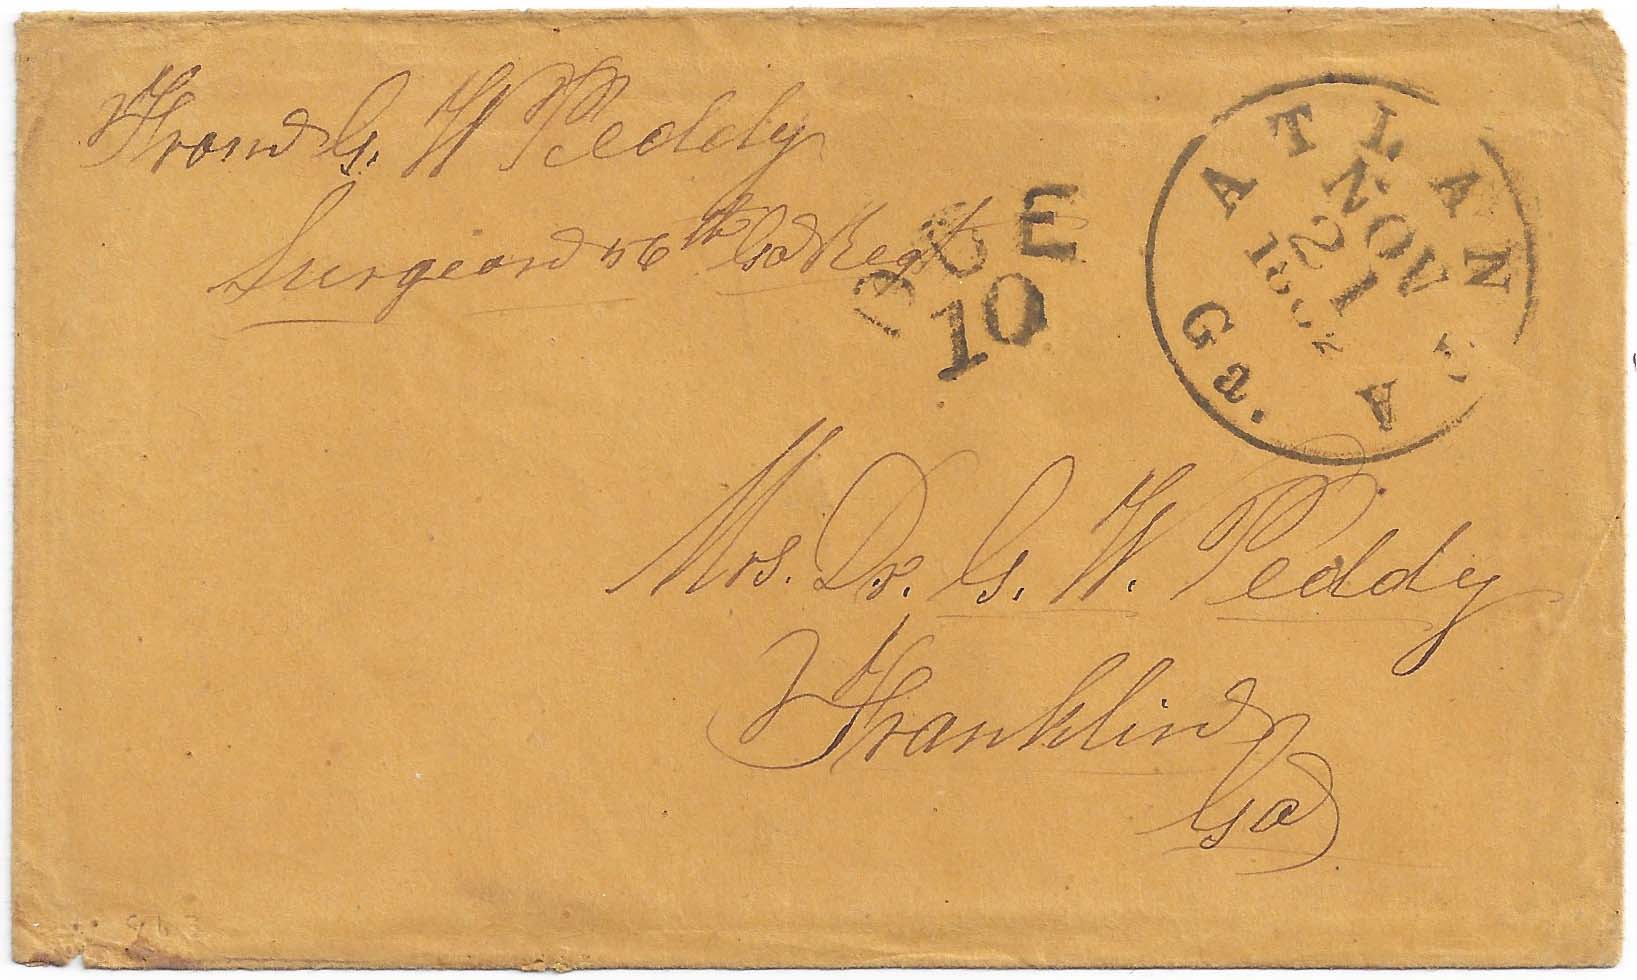 From G. W Peddy
Surgeon 56th Ga Regt
DUE
10
ATLANTA Ga.
NOV
21
1862
Mrs. Dr. G. W. Peddy
Franklin
Ga